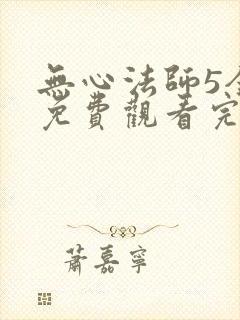 無心法師5全
免費觀看完
蕭嘉寧